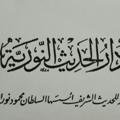 دار الحديث النورية
للحديث الشريف أسسها السلطان محمود نور